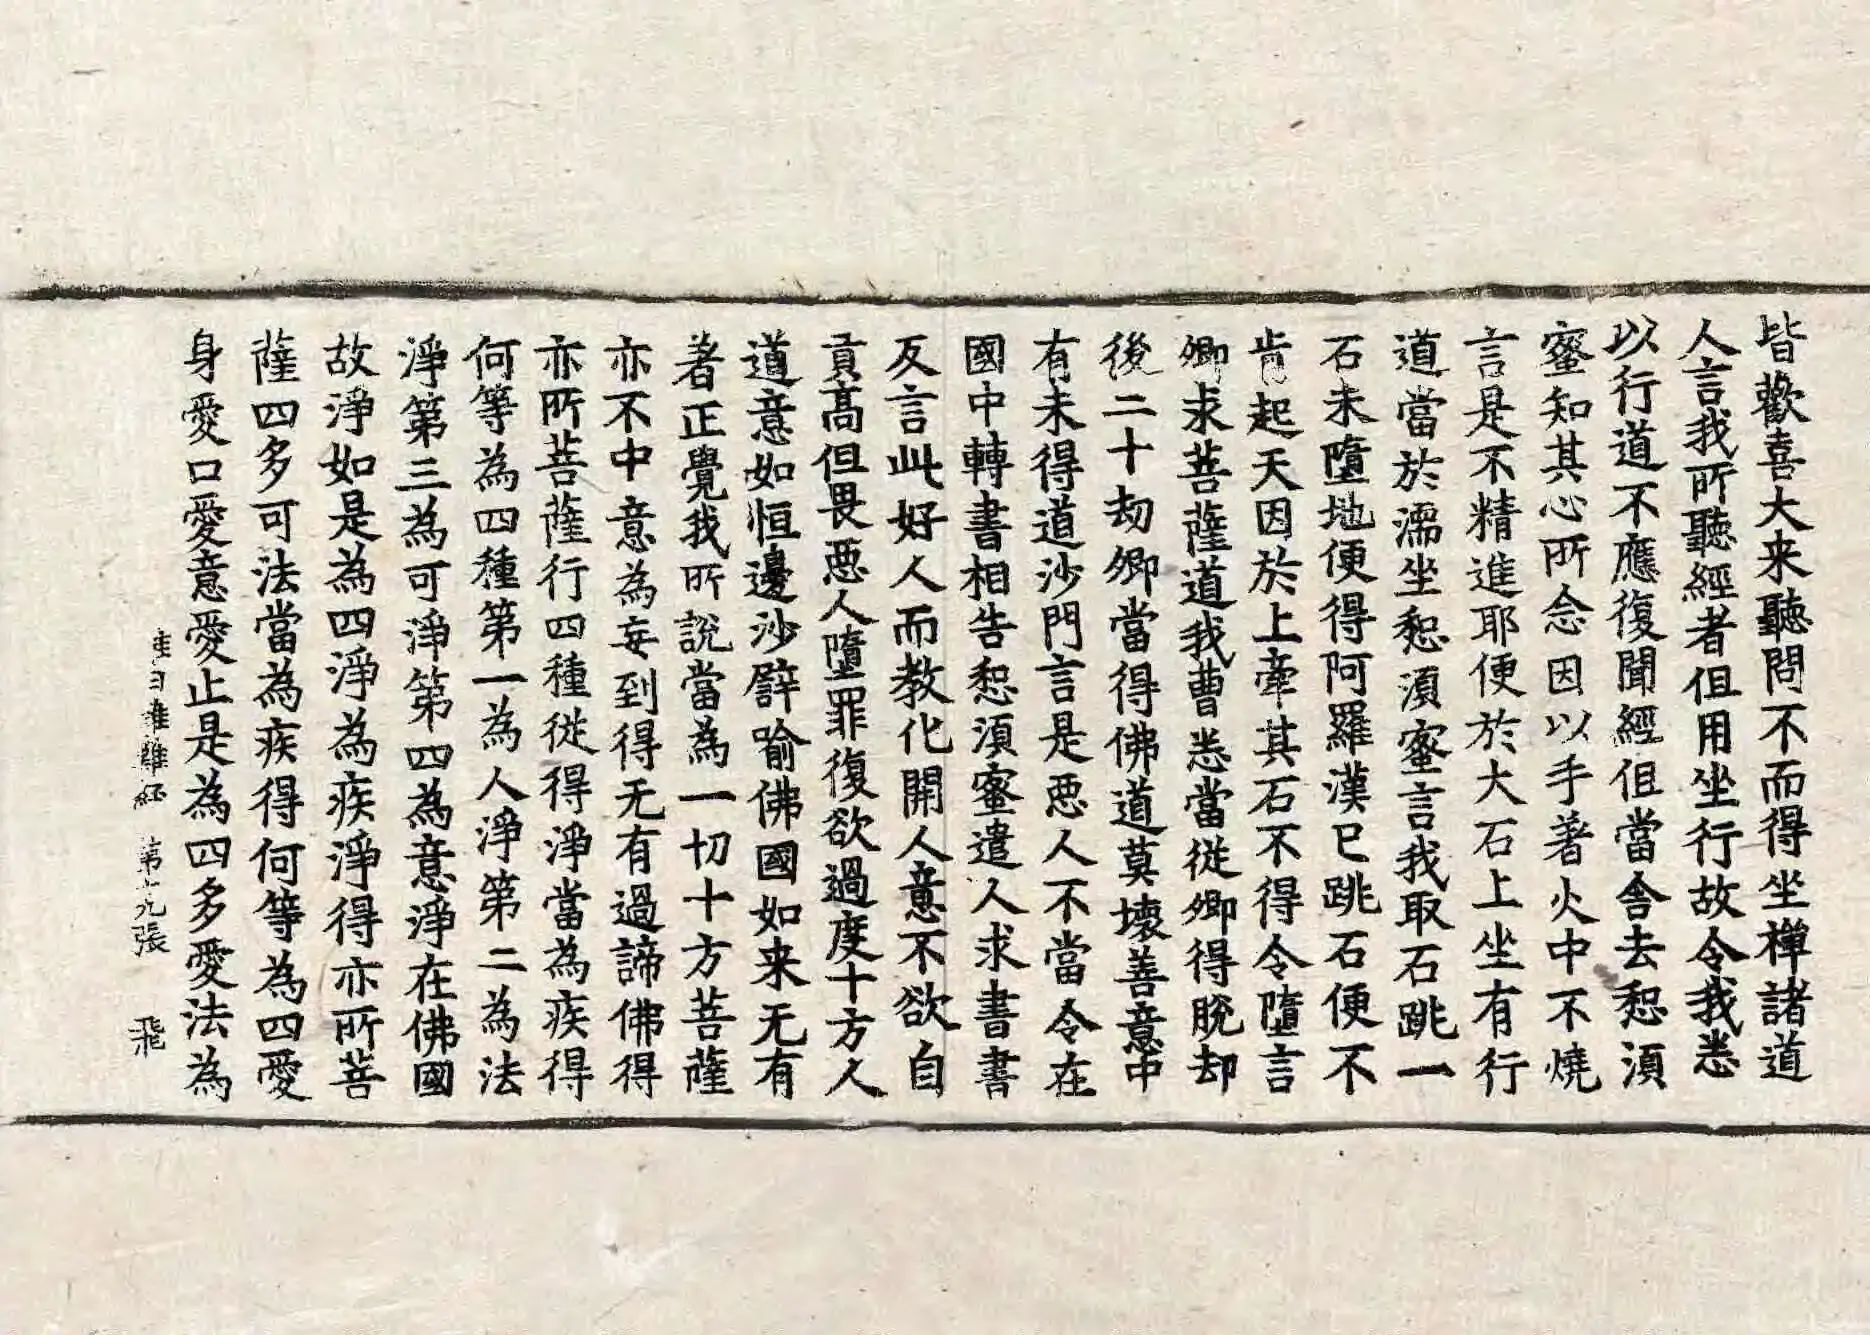 皆歡喜大来聽問不而得坐禪諸道
人言我所聽經者但用坐行故令我悉
以行道不應復聞經但當舍去惒湏
蜜知其心所念因以手著火中不燒
言是不精進耶便於大石上坐有行
道當於濡坐惒湏蜜言我取石跳一
石未墮地便得阿羅漢已跳石便不
肯起天因於上牽其石不得令墮言
卿求菩薩道我曹悉當從卿得脫却
後二十劫卿當得佛道莫壞善意中
有未得道沙門言是惡人不當令在
國中轉書相告惒湏蜜遣人求書書
反言此好人而教化開人意不欲自
貢高但畏惡人墮罪復欲過度十方人
道意如恒邊沙譬喻佛國如来无有
著正覺我所說當為一切十方菩薩
亦不中意為妄到得无有過諦佛得
亦所菩薩行四種從得淨當為疾得
何等為四種第一為人淨第二為法
淨第三為可淨第四為意淨在佛國
故淨如是為四淨為疾淨得亦所菩
薩四多可法當為疾得何等為四愛
身愛口愛意愛止是為四多愛法為
曰難經 第九張 飛